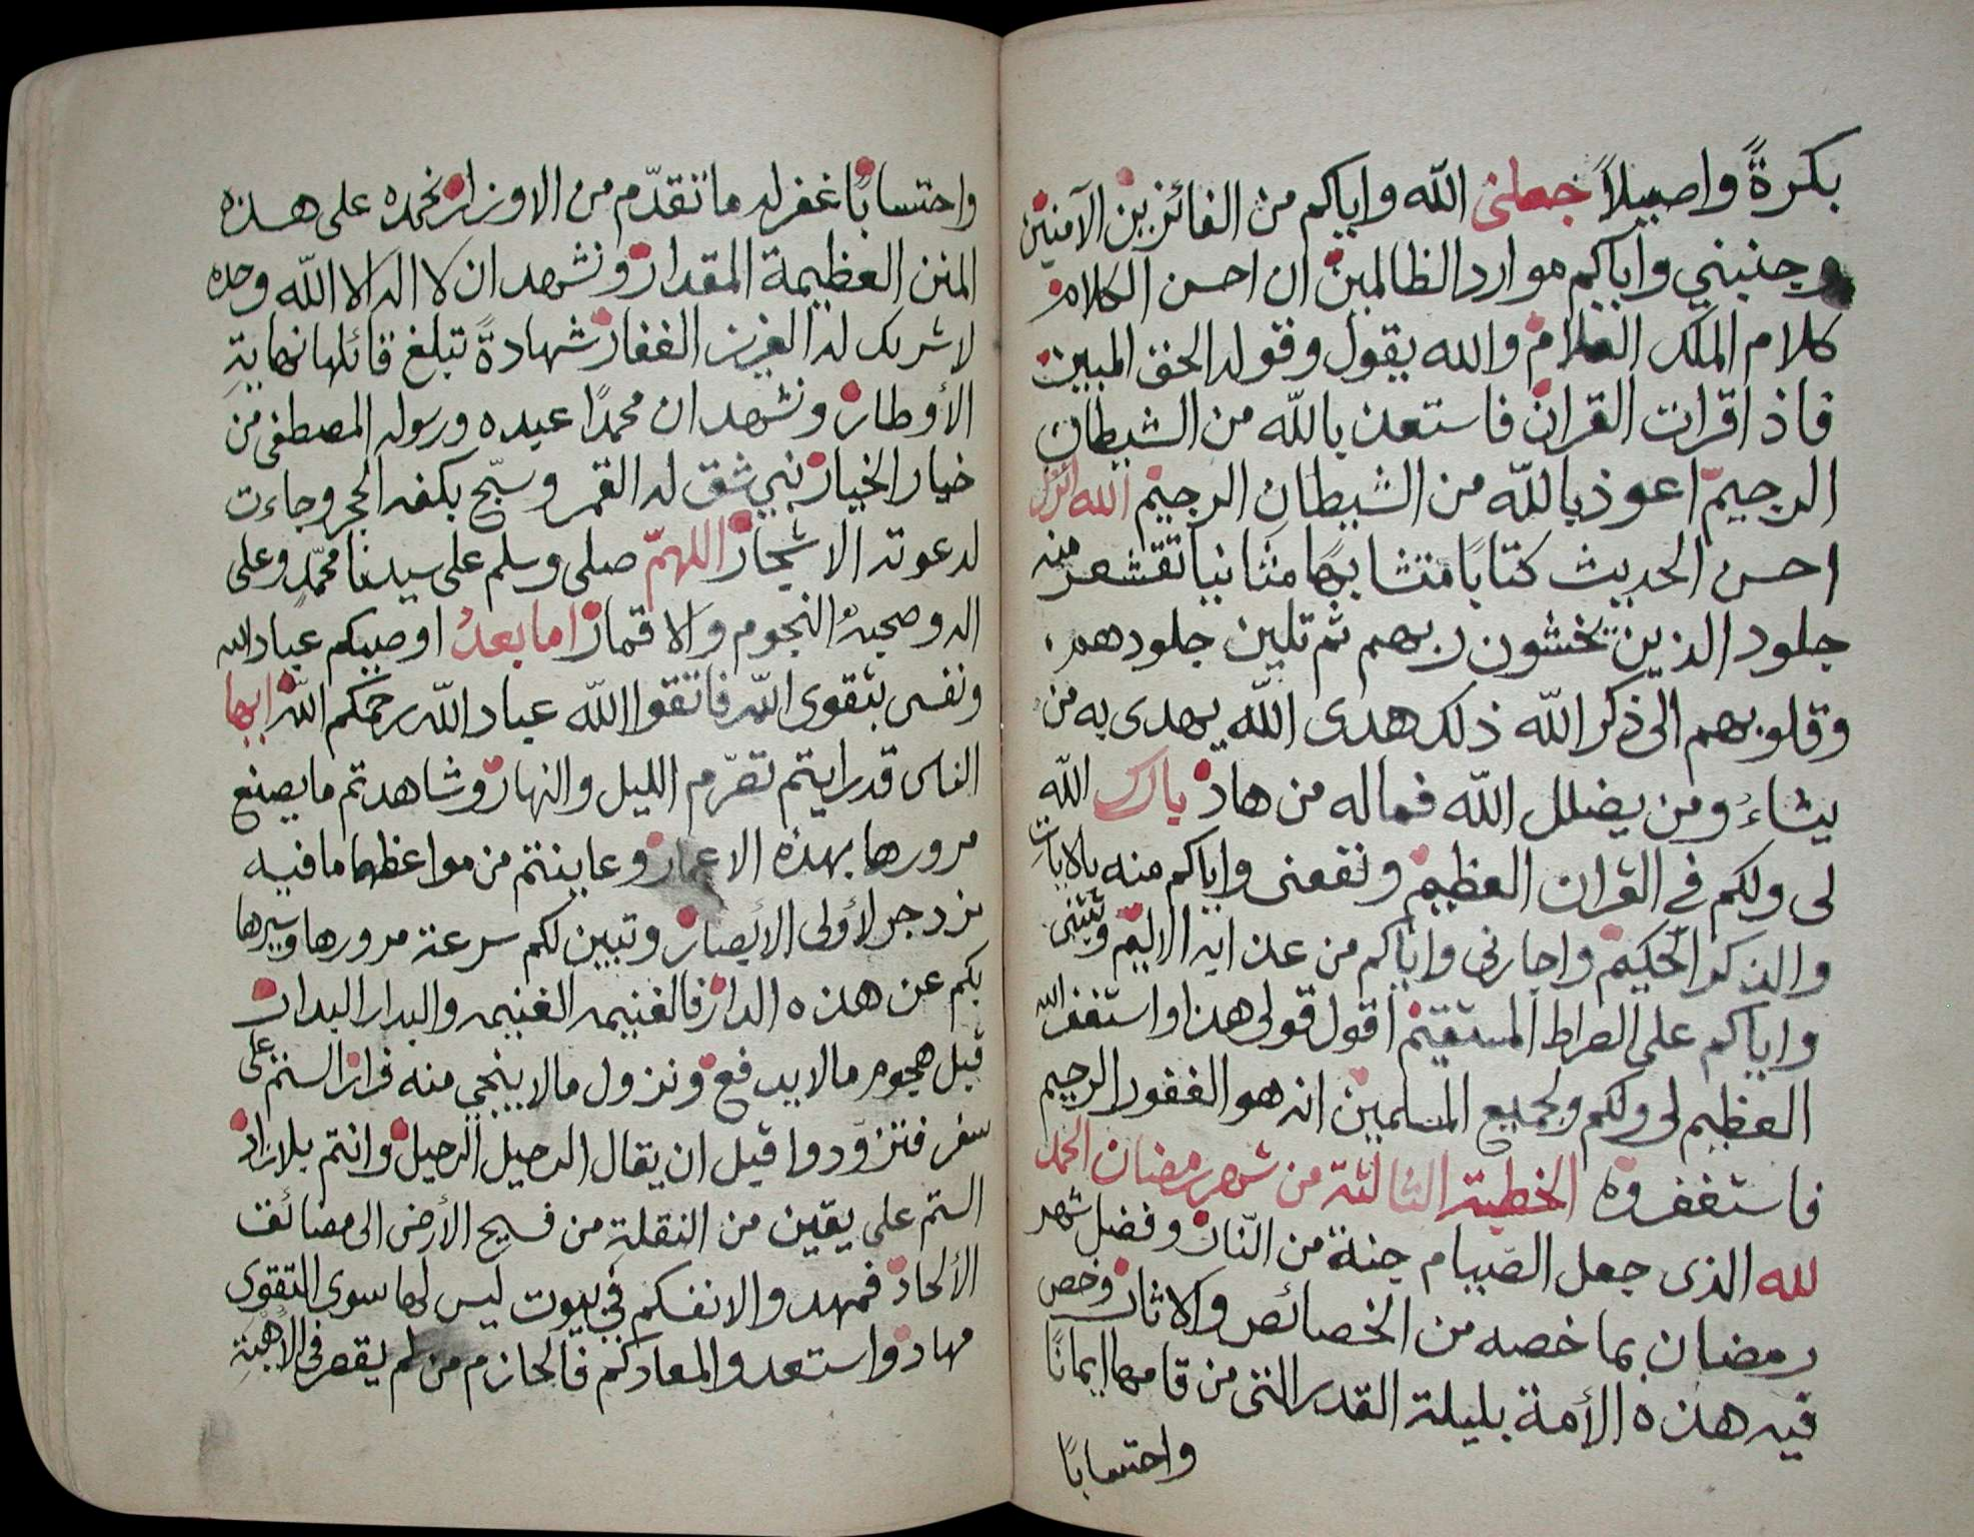 بكرةً واصيلاً جعلني الله واياكم من الفائزين الآمنين
وجنبني واياكم موارد الظالمين ان احسن الكلام
كلام الملك العلام والله يقول وقوله الحق المبين
فاذا قرات القران فاستعذ بالله من الشيطان
الرجيم اعوذ بالله من الشيطان الرجيم الله انزل
احسن الحديث كتابًا متشابهًا مثانيا تقشعر منه
جلود الذين يخشون ربهم ثم تلين جلودهم
وقلوبهم الى ذكر الله ذلك هدى الله يهدى به من
يشاءُ ومن يضلل الله فماله من هاد بارك الله
لى ولكم في القران العظيم ونفعنى واياكم منه بالايات
والذكر الحكيم واجارنى واياكم من عذابه الاليم وثبتنى
واياكم على الصراط المستقيم اقول قولى هذا واستغفر الله
العظيم لى ولكم ولجميع المسلمين انه هو الغفور الرحيم
فاستغفروه الخطبة الثالثة من شهر رمضان الحمد
لله الذى جعل الصيام جنة من النّار وفضل شهر
رمضان بما خصه من الخصائص والاثار وخص
فيه هذه الأمة بليلة القدر التى من قامها ايمانًا
واحتسابًا
واحتسابًا غفر له ما تقدّم من الاوزار نحمده على هذه
المنن العظيمة المقدار ونشهد ان لا اله الا الله وحده
لا شريك له العزيز الغفار شهادةً تبلغ قائلها نهاية
الأوطار ونشهد ان محمدًا عبده ورسوله المصطفى من
خيار الخيار نبي شق له القمر وسبّح بكفه الحجر وجاءت
لدعوته الاشجار اللهمّ صلى وسلم على سيدنا محمّد وعلى
اله وصحبهُ النجوم والاقمار اما بعدُ اوصيكم عباد الله
ونفسى بتقوى الله فاتقوا الله عباد الله رحمكم الله ايها
الناس قد رايتم تصرّم الليل والنهار وشاهدتم ما يصنع
مرورها بهذه الاعمار وعاينتم من مواعظها ما فيه
مزدجر لأولى الأبصار وتبين لكم سرعة مرورها وسيرها
بكم عن هذه الدار فالغنيمه الغنيمه والبدار البدار
قبل هجوم مالا يدفع ونزول مالا ينجي منه فرار الستم على
سفر فتزوّدوا قبل ان يقال الرحيل الرحيل وانتم بلا زاد
الستم على يقين من النقلة من فسيح الأرض الى مضائق
الألحاد فمهدوا لانفسكم في بيوت ليس لها سوى التقوى
مهاد واستعدوا لمعادكم فالحازم من لم يقصر في الأهبة